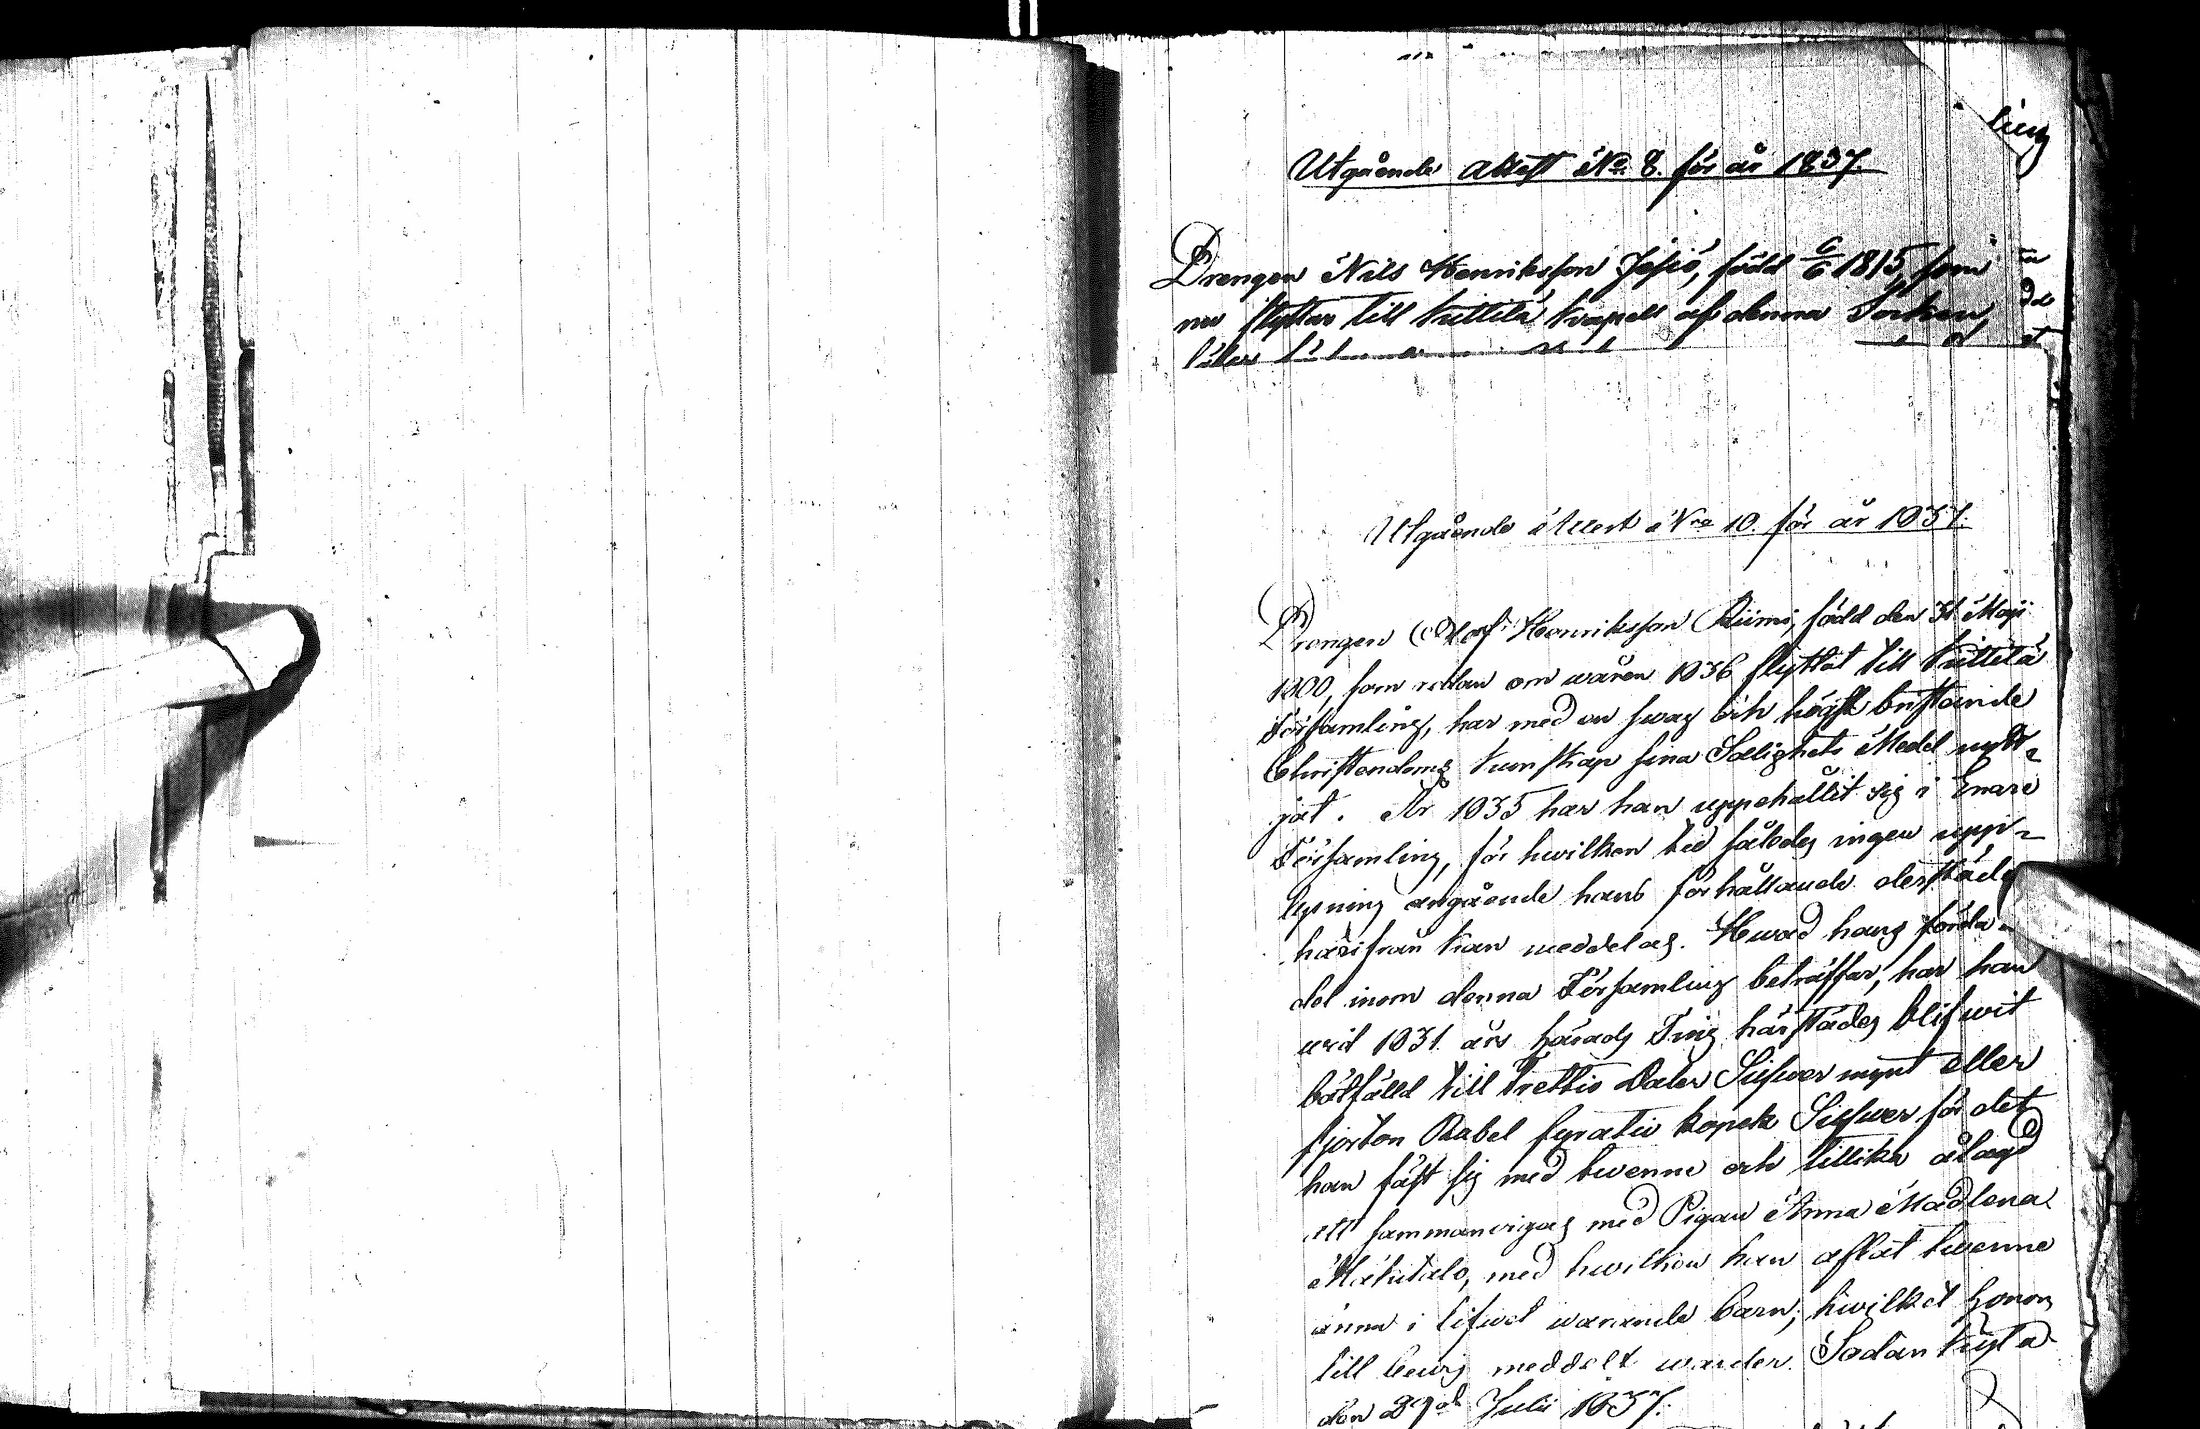 Utgående Attest No 8. för år 1837.
Drengen Nils Henriksson Jesiö, född 6/6 1815, som
nu flyttar till Kittilä Kapell af denna Socken,
Utgående Attest No 10. för år 1837.
Drengen Olof Henriksson Riimi, född den 31 Maji
1800, som redan om våren 1836 flyttat till Kittilä
Församling, har med en swag och högst bristande
Christendoms kunskap sina Salighets Medel nytt-
jat. År 1835 har han uppehållit sig i Enare
Församling, för hwilken tid således ingen upp-
lysning angående hans förhållande derstädes
härifrån kan meddelas. Hwad hans förhål-
del inom denna Församling beträffar, har han
wid 1831 års härads Ting härstädes blifwit
bötfälld till Trettio Daler Silfwer mynt eller
fjorton Rubel fyratio kopek Silfwer för det
han fäst sig med twenne och tillika ålagd
att sammanvigas med Pigan Anna Madlena
Mäkitalo, med hwilken han aflat twenne
ännu i lifwet warande barn; hwilket honom
till bewis meddelt warder. Sodankylä
den 29de Julii 1837.